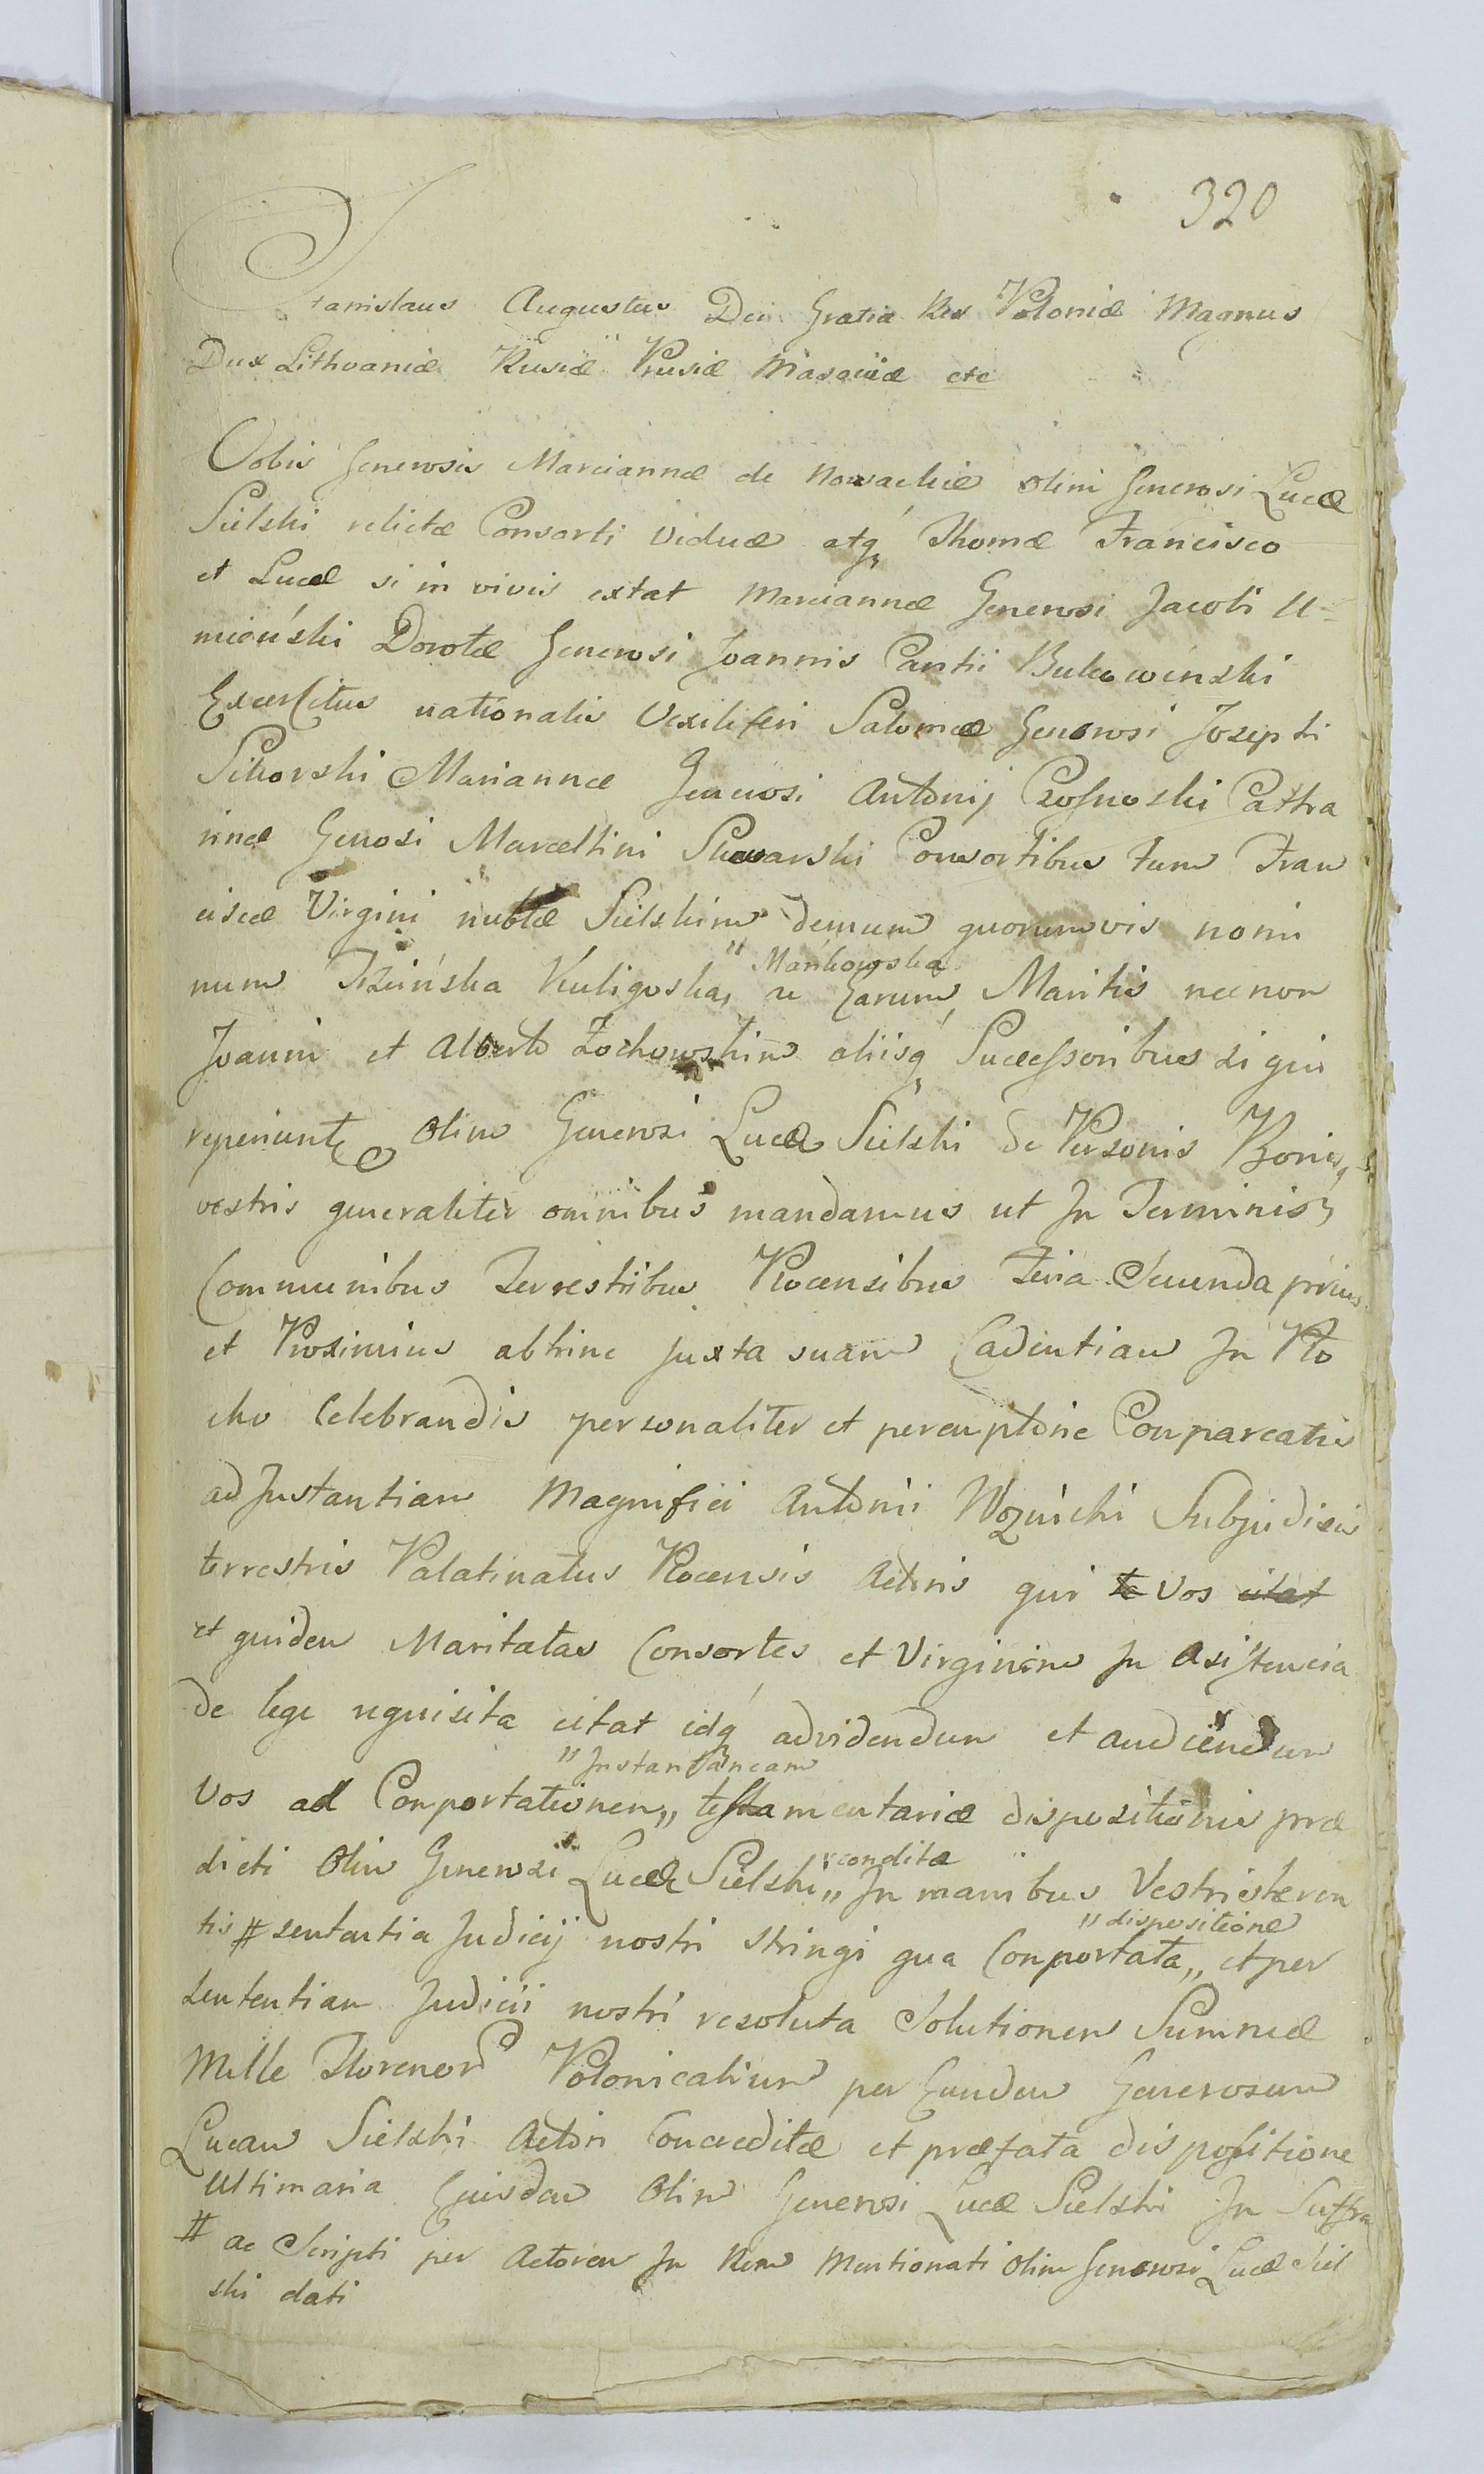 320
Stanislaus Augustus Dei Gratia Rex Poloniæ Magnus
Dux Lithvaniæ Rusiæ Prusiæ Masoviæ etc
Vobis Generosis Mariannæ de Nowackie olim Generosi Lucæ
Sielski relictæ Consorti viduæ atq, Thomæ Francisco
et Lucæ si in vivis extat Mariannæ Generosi Jacobi U=
mieński Dorotæ Generosi Joannis Cantii Bukowinski
Exercitus nationalis Vexiliferi Salomæ Generosi Josephi
Sikorski Mariannæ Generosi Antonij Czosnoski Cathra
rinæ Genosi Marcellini Skwarski Consortibus tum Fran
ciscæ Virgini nubilæ Sielskim demum quorumvis nomi
num Trzińska Kuligoska, " Mańkowska ac Earum Maritis necnon
Joanni et Alberto Żochowskim aliisq, Successoribus si qui
reperiunt olim Generosi Lucæ Sielski de Personis Bonisq,
vestris generaliter omnibus mandamus ut In Terminis
Communibus Terrestribus Plocensibus Feria Secunda primo
et Proximius abhinc juxta suam Cadentiam In Plo
cko Celebrandis personaliter et peremptorie Compareatis
ad Instantiam Magnifici Antonii Woznicki Subjudicis
terrestris Palatinatus Plocensis Actoris qui te vos citat
et quidem Maritatas Consortes et Virginem In Asistencia
de lege requisita citat idq, ad videndum et audiendum
" Instantaneam
Vos ad Comportationem ,, testamentariæ dispositionis præ
dicti Olim Generosi Lucæ Sielski ,, " conditæ In manibus Vestris hæren
tis # sententia Judicij nostri stringi qua Comportata ,, " dispositione et per
sententiam Judicii nostri resoluta Solutionem Summæ
Mille Florenor Polonicalium per Eundem Generosum
Lucam Sielski Actori Concreditæ et præfata dispositione
Ultimaria Ejusdem Olim Generosi Lucæ Sielski In Suffra
# ac Scripti per Actorem In Rem Mentionati olim Generosi Lucæ Siel
ski dati